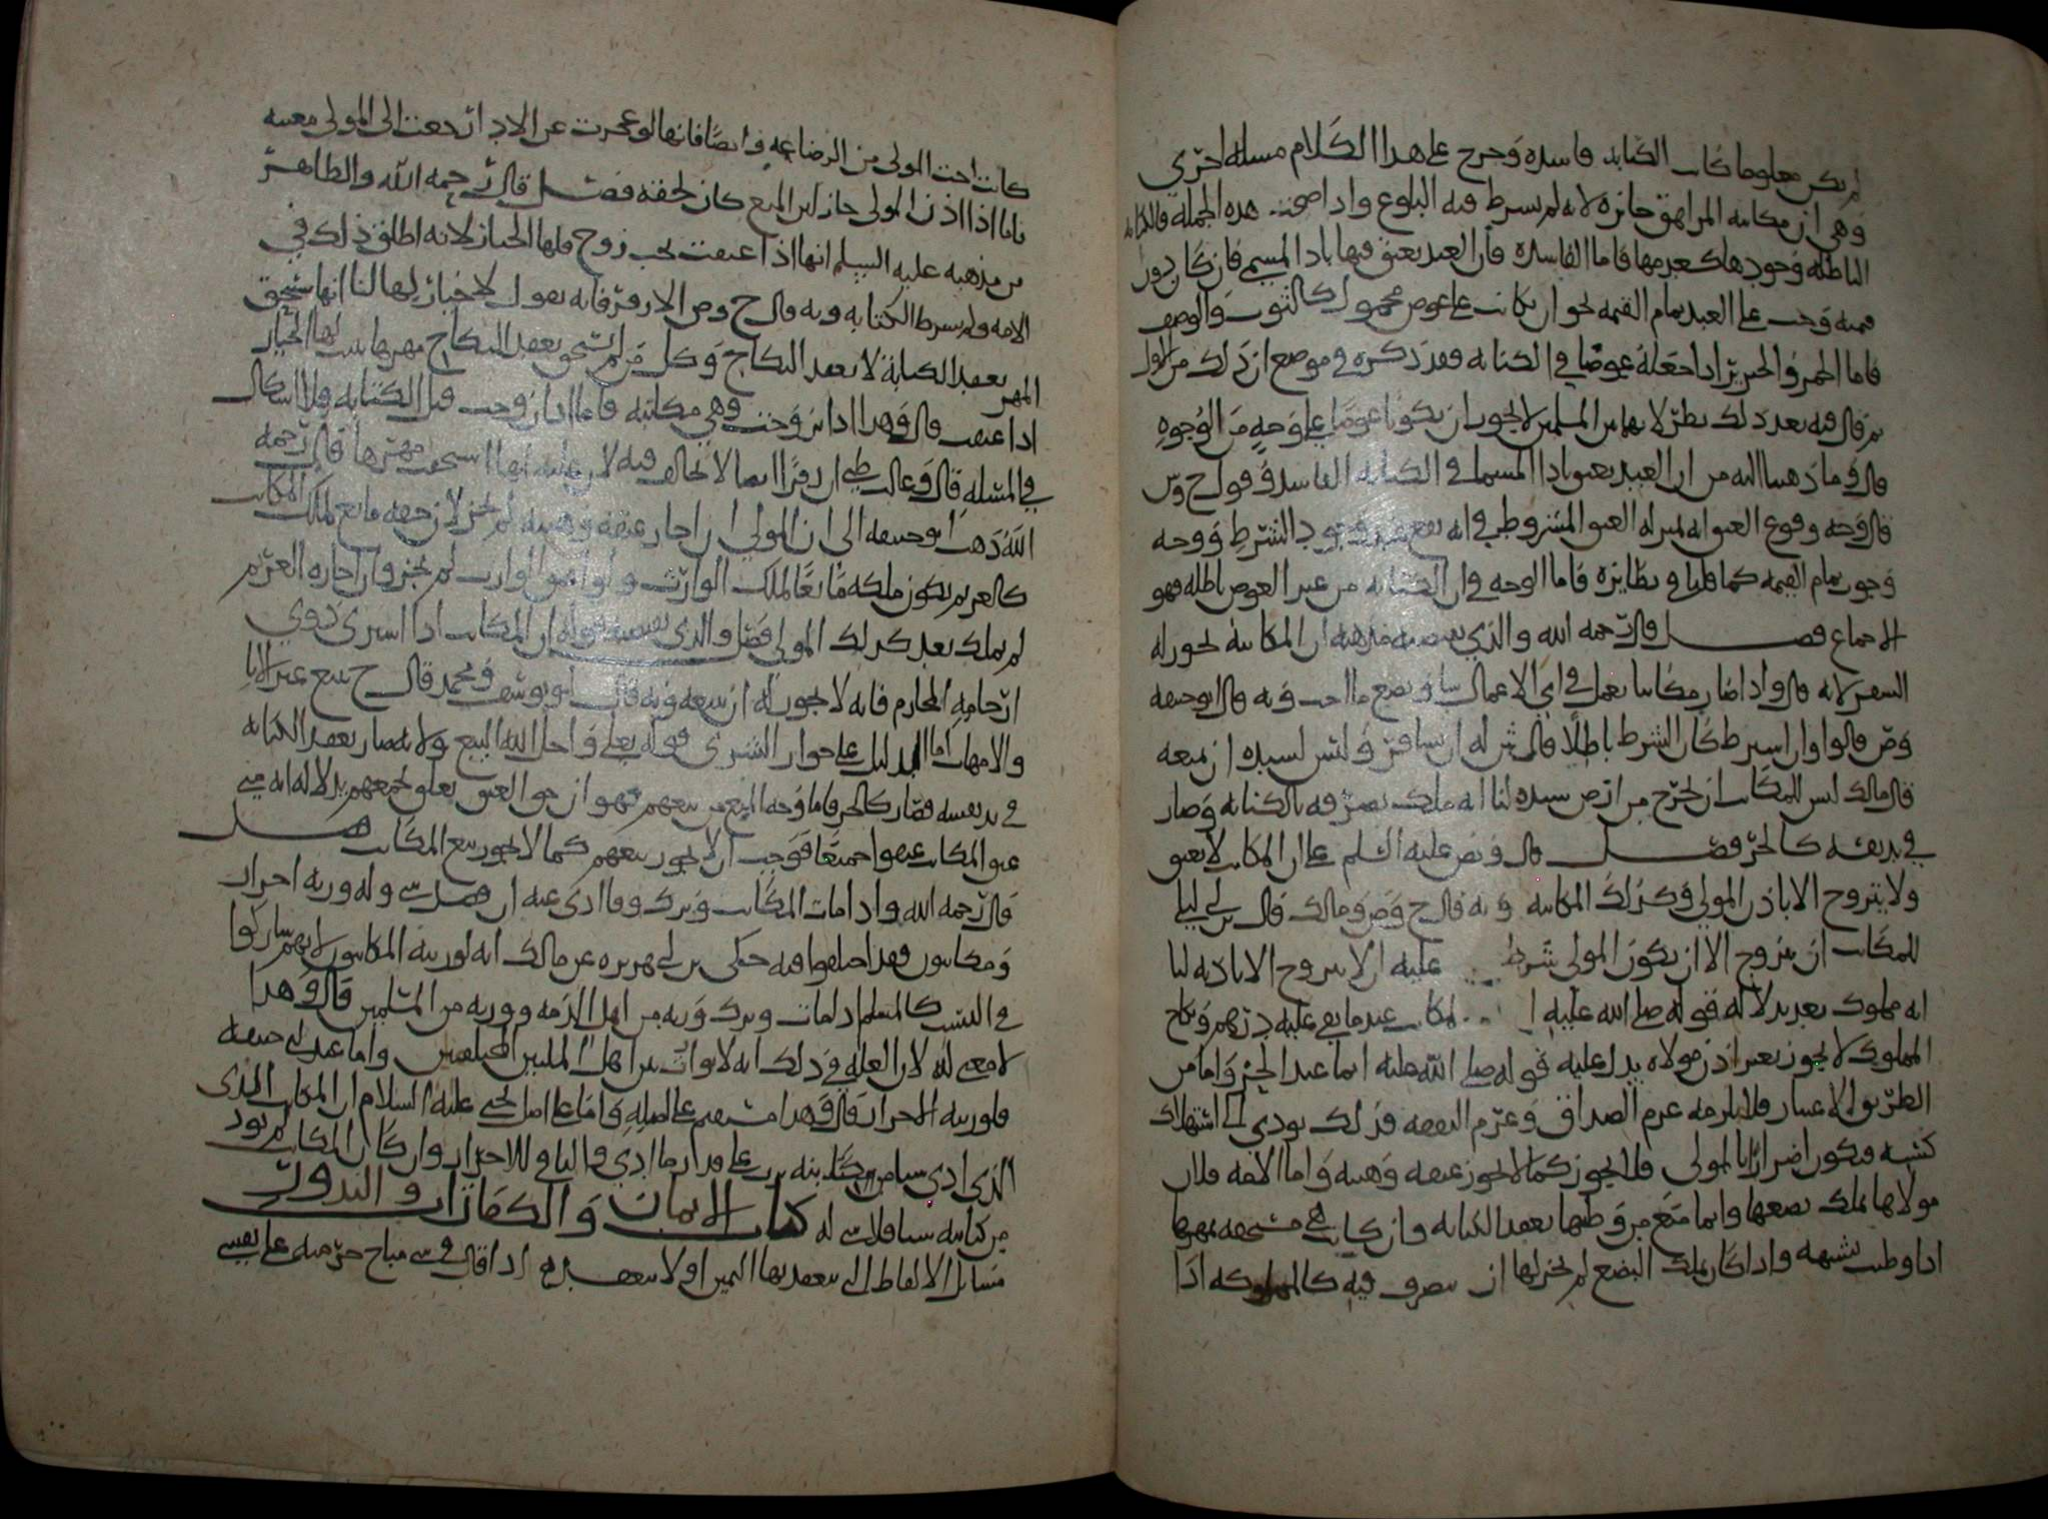 لم يكن معلوما كانت الكتابة فاسدة وخرج على هذا الكلام مسلة اخرى
وهي ان مكاتبة المراهق جائزة لانه لم يشرط فيه البلوغ واذا صحت هذه الجملة فالكتابة
الباطلة وجودها كعدمها فاما الفاسدة فان العبد يعتق فيها باداء المسمى فان كان دون
قيمته وجب على العبد تمام القيمة نحو ان يكاتب على عوض مجهول كالثوب والوصيف
فاما الخمر والخنزير اذا جعله عوضا في الكتابة فقد ذكره في موضع ان ذلك من الاول
ثم قال فيه بعد ذلك نظر لانهما بين المسلمين لا يجوز ان يكونا عوضا على وجه من الوجوه
قال وما ذهبنا اليه من ان العبد يعتق باداء المسمى في الكتابة الفاسدة قول ح وص
قال وجه وقوع العتق انه بمنزلة العتق المشروط في انه يقع عند وجود الشرط ووجه
وجوب تمام القيمة كما قلنا في نظائره فاما الوجه في ان الكتابة من غير العوض باطلة فهو
الاجماع فصل قال رحمه الله والذي يقتضيه مذهبه ان المكاتب يجوز له
السفر لانه قال واذا صار مكاتبا يعمل في اي الاعمال شا ويصنع ما احب وبه قال ابو حنيفة
وص قالوا وان اشرط كان الشرط باطلا قال ش له ان يسافر وليس لسيده ان يمنعه
قال مالك ليس للمكاتب ان يخرج من ارض سيده لنا انه ملك تصرفه بالكتابة وصار
في يد نفسه كالحر فصل قال ونص عليه السلم على ان المكاتب لا يعتق
ولا يتزوج الا باذن المولى وكذلك المكاتبة وبه قال ح وص ومالك قال بن ابي ليلى
للمكاتب ان يتزوج الا ان يكون المولى شرط عليه ان لا يتزوج الا باذنه لنا
انه مملوك بعد بدلالة قوله صلى الله عليه المكاتب عبد ما بقي عليه درهم ونكاح
المملوك لا يجوز بغير اذن مولاه يدل عليه قوله صلى الله عليه ايما عبد الخبر واما من
الطريق الاعتبار فلانه يلزمه غرم الصداق وغرم النفقة فذلك يودي الى استهلاك
كسبه فيكون اضرارا بالمولى فلا يجوز كما لا يجوز عتقه وهبته واما الامة فلان
مولاها يملك بضعها وانما منع من وطئها بعقد الكتابة وان كانت هي مستحقه لمهرها
اذا وطئت بشبهة واذا كان يملك البضع لم يجز لها ان تتصرف فيه كالمملوكة اذا
كانت اخت المولى من الرضاعة وايضا فانها لو عجزت عن الادا رجعت الى المولى معيبة
فاما اذا اذن المولى جاز لان المنع كان لحقه فصل قال رحمه الله والظاهر
من مذهبه عليه السلم انها اذا عتقت تحت زوج فلها الخيار لانه اطلق ذلك في
الامة ولم يشرط الكتابة وبه قال ح وص الا زفر فانه يقول لا خيار لها لنا انها تستحق
المهر بعقد الكتابة لا بعقد النكاح وكل من لم تستحق بعقد النكاح مهرها ثبت لها الخيار
اذا عتقت قال وهذا اذا تزوجت وهي مكاتبة فاما اذا تزوجت قبل الكتابة فلا اشكال
في المسلة قال وغالب ظني ان زفرا انما لا يخالف فيه لان عليه انها استحقت مهرها قال رحمه
الله ذهب ابو حنيفة الى ان المولى ان اجاز عتقه وهبته لم يجز لان حقه مانع لملك المكاتب
كالغريم يكون ملكه مانعا لملك الوارث ولو اعتق الوارث لم يجز وان اجازه الغريم
لم يملك بعد كذلك المولى فصل والذي يقتضيه قوله ان المكاتب اذا اشترى ذوي
ارحامه المحارم فانه لا يجوز له ان يبيعه وبه قال ابو يوسف ومحمد قال ح يبيع غير الابا
والامهات اما الدليل على جواز الشرى قوله تعلى واحل الله البيع ولانه صار بعقد الكتابة
في يد نفسه فصار كالحر فاما وجه المنع من بيعهم فهو ان حق العتق تعلق بجميعهم بدلالة انه متى
عتق المكاتب عتقوا جميعا فوجب ان لا يجوز بيعهم كما لا يجوز بيع المكاتب فصل
قال رحمه الله واذا مات المكاتب وترك وفا ادى عنه ان فضل شي وله ورثة احرار
ومكاتبون فقد اختلفوا فيه حكى بن ابي هريرة عن مالك انه لورثته المكاتبون لانهم شاركوا
في النسب كالمسلم اذا مات وترك ورثة من اهل الذمة وورثة من المسلمين قال وهذا
لا معنى له لان العلة في ذلك انه لا توارث بين اهل الملتين المختلفتين واما عند ابي حنيفة
فلورثته الاحرار قال وهذا مستقيم على اصله واما على اصل يحيى عليه السلام ان المكاتب الذي
الذي ادى شيا من كتابته يرث على مقدار ما ادى والباقي للاحرار وان كان المكاتب لم يود
من كتابته شيا فلا شي له كتاب الايمان والكفارات والنذور
مسائل الالفاظ التي تنعقد بها اليمين او لا تنعقد اذا قال في شي مباح حرمته على نفسي